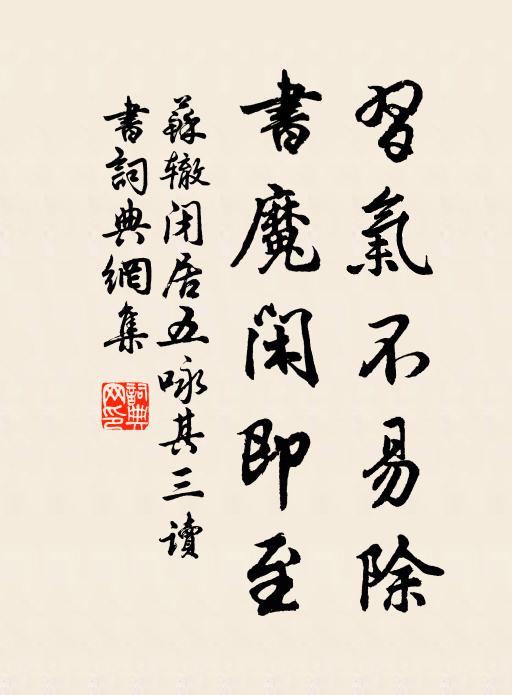 習氣不易除
書魔閑即至
蘇辙闭居五咏其三讀
書詞典網集
詞典
网印